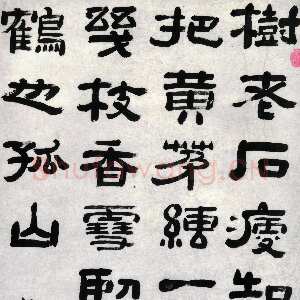 樹老石瘦
把黄茅一
幾枝香雪
鶴也孤山